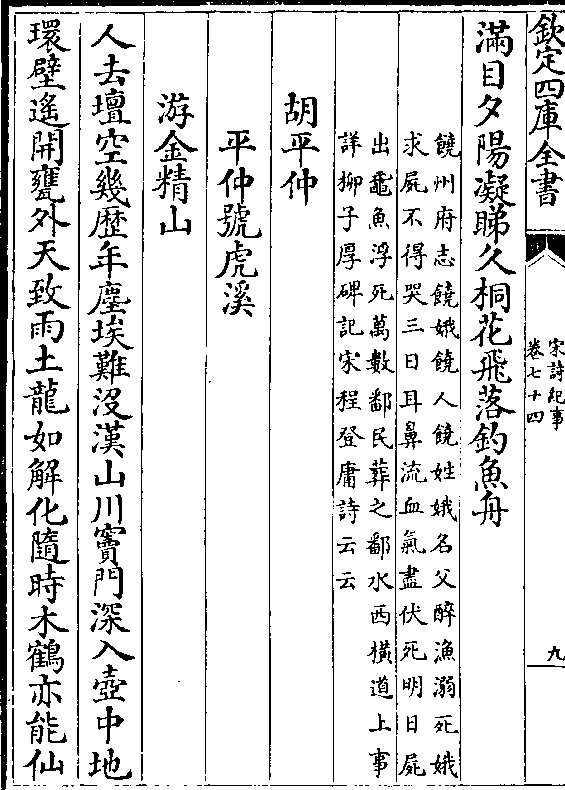 欽定四庫全書
宋詩紀事
卷七十四
九
滿目夕陽凝睇久桐花飛落釣魚舟
饒州府志饒娥饒人饒姓娥名父醉漁溺死娥
求屍不得哭三日耳鼻流血氣盡伏死明日屍
出黿魚浮死萬數鄱民葬之鄱水西橫道上事
詳柳子厚碑記宋程登庸詩云云
胡平仲
平仲號虎溪
游金精山
人去壇空幾歴年塵埃難没漢山川竇門深入壺中地
環壁遙開甕外天致雨土龍如解化隨時木鶴亦能仙